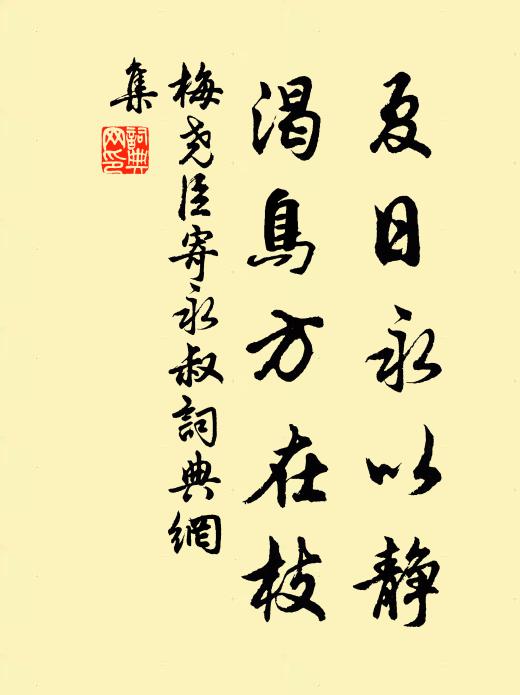 夏日永以静
渴鳥方在枝
梅尧臣寄永叔詞典網
集
詞典
网印